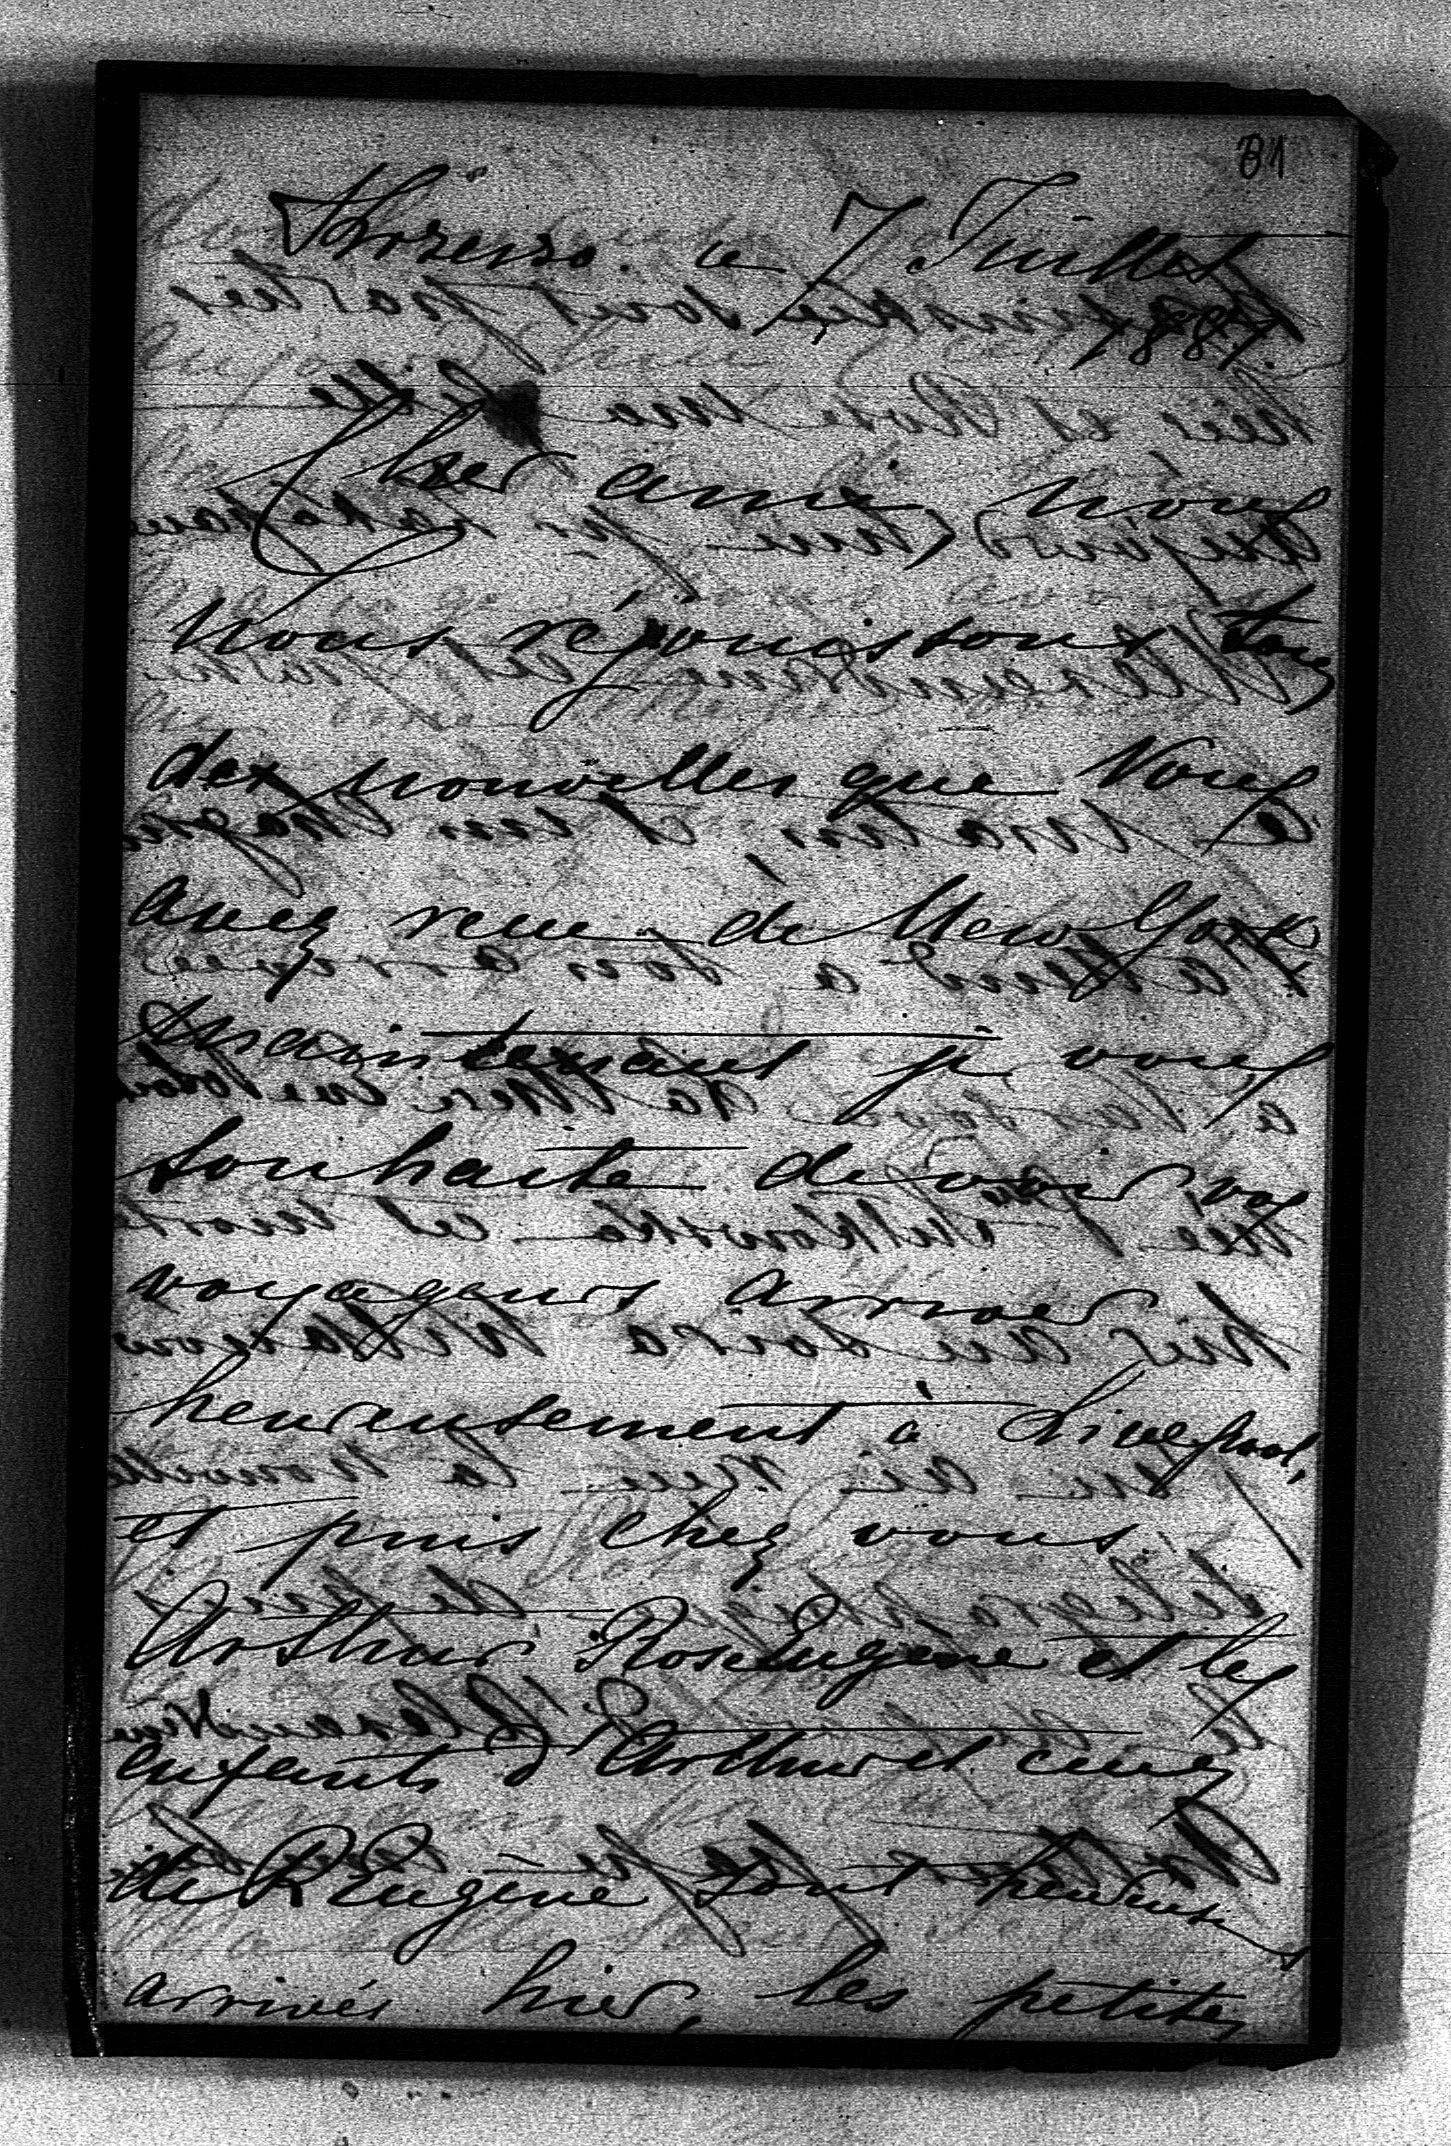 81
Krzeszo. ce 7 Juillet
1887.
Cher ami, nous
nous réjouissons tous
des nouvelles que Vous
avez reçu de New York
Maintenant je vous
souhaite de voir vos
voyageurs arriver
heureusement à Liverpool,
et puis chez vous.
Arthur Rose Eugène et les
enfants d'Arthur et ceux
de R Eugène sont heureuse
arrivés hier, les petites